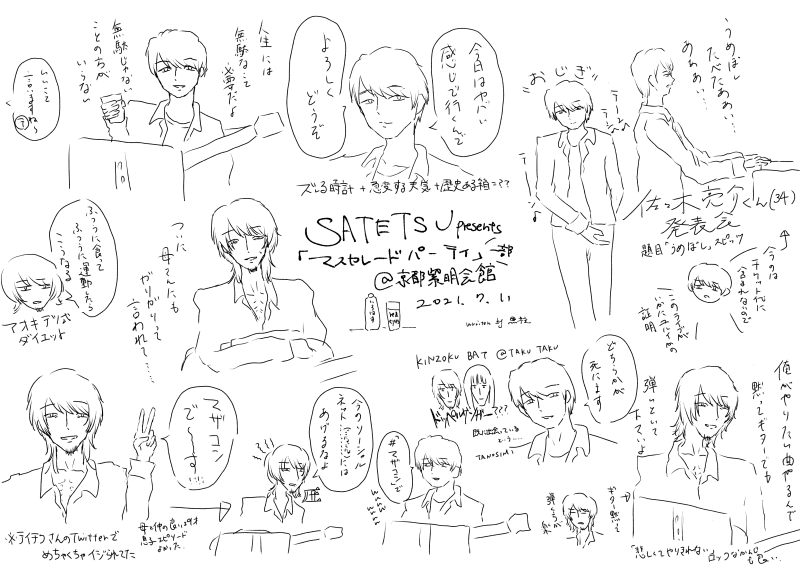 人生には
無駄なって
必要だよ
無駄じゃない
ことのちが
いらない
いいこと
言いますねら
今日はヤバい
感じで行くんで
よろしく
どうぞ
おじぎ
うめぼし
たべたああい…
あああい…
佐々木亮介くん(34)
発表会
題目「うめぼし」スピッツ
ズレる時計+急変する天気+歴史ある箱=??
SATETSU presents
「マスカレードパーティ」一部
@京都紫明会館
2021.7.1
written by
今のは
チケット代に
含まれないので
証明
ふつうに食って
ふつうに運動したら
こうなる
アオキテツ式
ダイエット
ついに
母さんにも
がっかりって
言われて……
マザコン
で〜す…!!!
※テイテツさんのTwitterで
めちゃくちゃイジられてた
母と仲の良いまずオ
息子エピソード
よかった
今のソーシャル
ネットワークには
あげるなよ
#マザコンで
KINZOKU BAT @TAKUTAKU
ドッペルゲンガー???
既に出会っている
どう…
TANOSIMI
どちらかが
死にます
ギター黙って
弾くらが
俺がやりたい曲やるんで
黙ってギターでも
弾いといて
下さいよ
「悲しくてやりきれない」
ロックなかんじ
も良い…